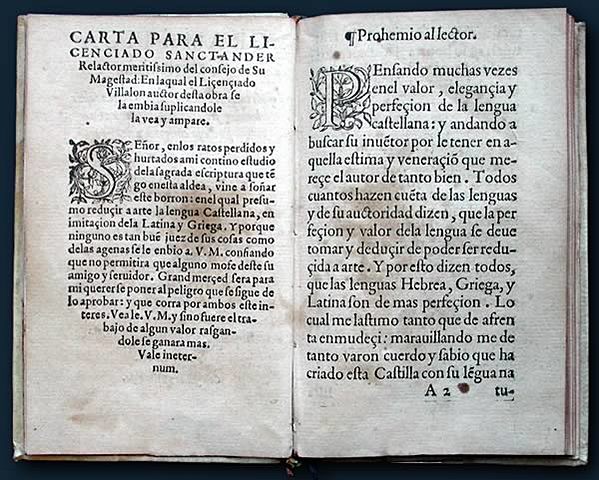 CARTA PARA EL LI-
CENCIADO SANCTANDER
Relactor meritissimo del consejo de Su
Magestad: En laqual el Liçençiado
Villalon auctor desta obra se
la embia suplicandole
la vea y ampare.
SEñor, enlos ratos perdidos y
hurtados ami contino estudio
dela sagrada escriptura que tē
go enesta aldea, vine a soñar
este borron: enel qual presu-
mo reduçir a arte la lengua Castellana, en
imitaçion dela Latina y Griega. Y porque
ninguno es tan bué juez de sus cosas como
delas agenas se le enbio a. V. M. confiando
que no permitira que alguno mofe deste su
amigo y seruidor. Grand merçed sera para
mi querer se poner al peligro que se sigue de
lo aprobar: y que corra por ambos este in-
teres. Vea le. V. M. y si no fuere el tra-
bajo de algun valor rasgan-
dole se ganara mas.
Vale in eter-
num.
¶Prohemio al lector.
PEnsando muchas vezes
enel valor, elegançia y
perfeçion de la lengua
castellana: y andando a
buscar su inuētor por le tener en a-
quella estima y veneraçiō que me-
reçe el autor de tanto bien. Todos
cuantos hazen cuēta de las lenguas
y de su auctoridad dizen, que la per
feçion y valor dela lengua se deue
tomar y deduçir de poder ser redu-
çida a arte. Y por esto dizen todos,
que las lenguas Hebrea, Griega, y
Latina son de mas perfeçion. Lo
cual me lastimo tanto que de afren
ta enmudeçi: marauillando me de
tanto varon cuerdo y sabio que ha
criado esta Castilla con su lēgua na
A 2 tu-